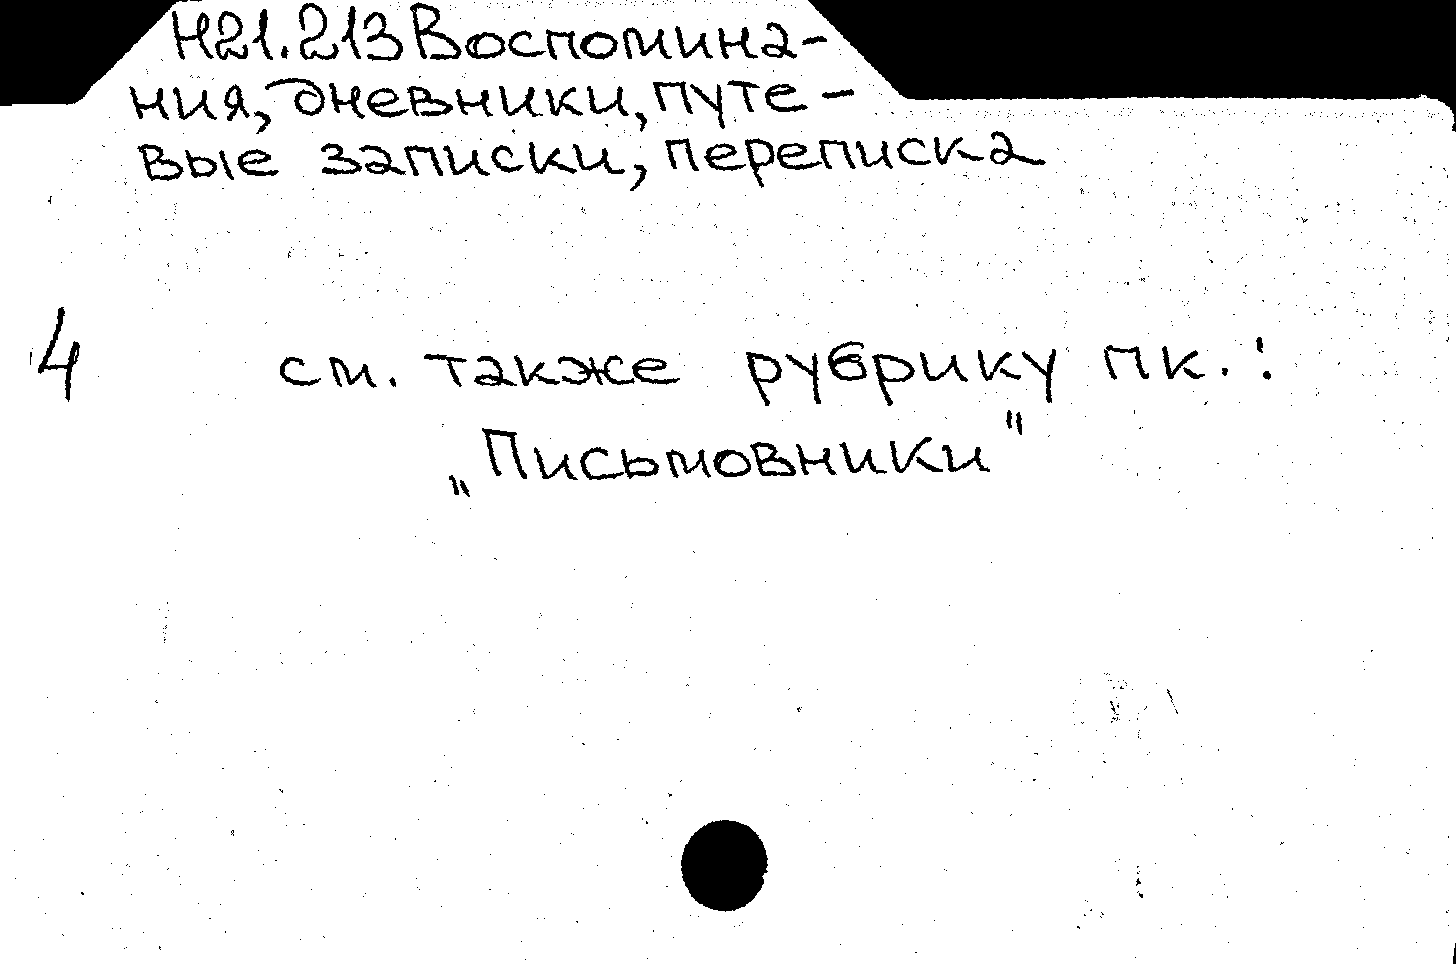 Н21.213 Воспомина-
ния, дневники, путе-
вые записки, переписка
4 см. также рубрику пк.:
„Письмовники"